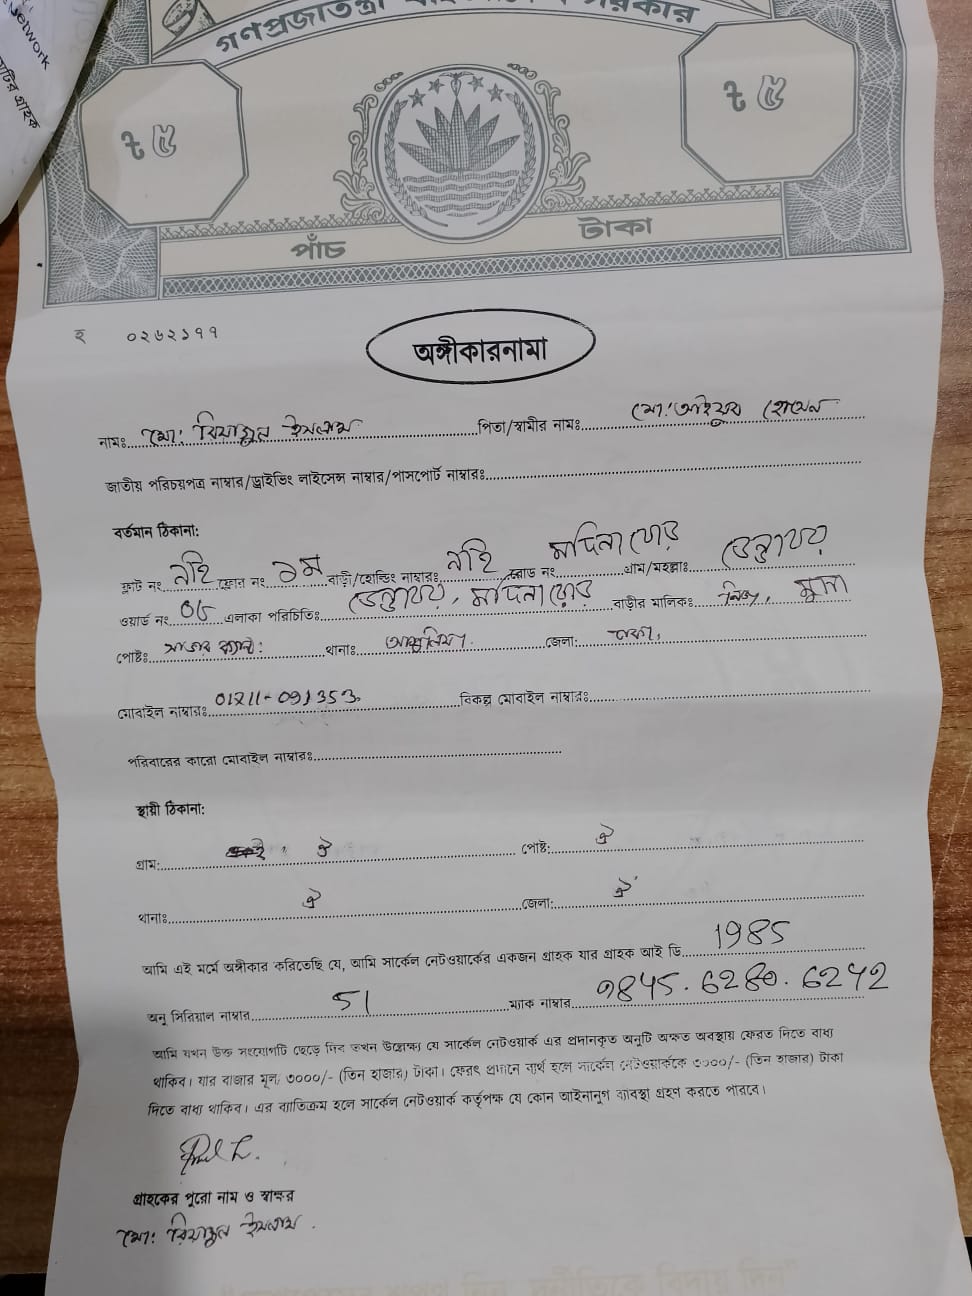 Network
৳ ৫
৳ ৫
পাঁচ টাকা
০২৬২১৭৭
অঙ্গীকারনামা
নামঃ মো: রিয়াজুল ইসলাম পিতা/স্বামীর নামঃ মো: আইয়ুব হোসেন
জাতীয় পরিচয়পত্র নাম্বার/ড্রাইভিং লাইসেন্স নাম্বার/পাসপোর্ট নাম্বারঃ
বর্তমান ঠিকানা:
ফ্লাট নং নাই ফ্লোর নং ১ম বাড়ী/হোল্ডিং নাম্বারঃ নাই রোড নং গ্রাম/মহল্লাঃ
ওয়ার্ড নং ০৫ এলাকা পরিচিতিঃ বাড়ীর মালিকঃ নিজ,
পোষ্টঃ থানাঃ আশুলিয়া জেলা: ঢাকা,
মোবাইল নাম্বারঃ বিকল্প মোবাইল নাম্বারঃ
পরিবারের কারো মোবাইল নাম্বারঃ
স্থায়ী ঠিকানা:
গ্রাম: ঐ পোষ্ট: ঐ
থানাঃ ঐ জেলা: ঐ
আমি এই মর্মে অঙ্গীকার করিতেছি যে, আমি সার্কেল নেটওয়ার্কের একজন গ্রাহক যার গ্রাহক আই ডি 1985
অনু সিরিয়াল নাম্বার 51 ম্যাক নাম্বার 9845.6280.6242
আমি যখন উক্ত সংযোগটি ছেড়ে দিব তখন উল্লেক্ষ্য যে সার্কেল নেটওয়ার্ক এর প্রদানকৃত অনুটি অক্ষত অবস্থায় ফেরত দিতে বাধ্য
থাকিব। যার বাজার মূল্য ৩০০০/- (তিন হাজার) টাকা। ফেরৎ প্রদানে ব্যর্থ হলে সার্কেল নেটওয়ার্ককে ৩০০০/- (তিন হাজার) টাকা
দিতে বাধ্য থাকিব। এর ব্যাতিক্রম হলে সার্কেল নেটওয়ার্ক কর্তৃপক্ষ যে কোন আইনানুগ ব্যবস্থা গ্রহণ করতে পারবে।
গ্রাহকের পুরো নাম ও স্বাক্ষর
মো: রিয়াজুল ইসলাম